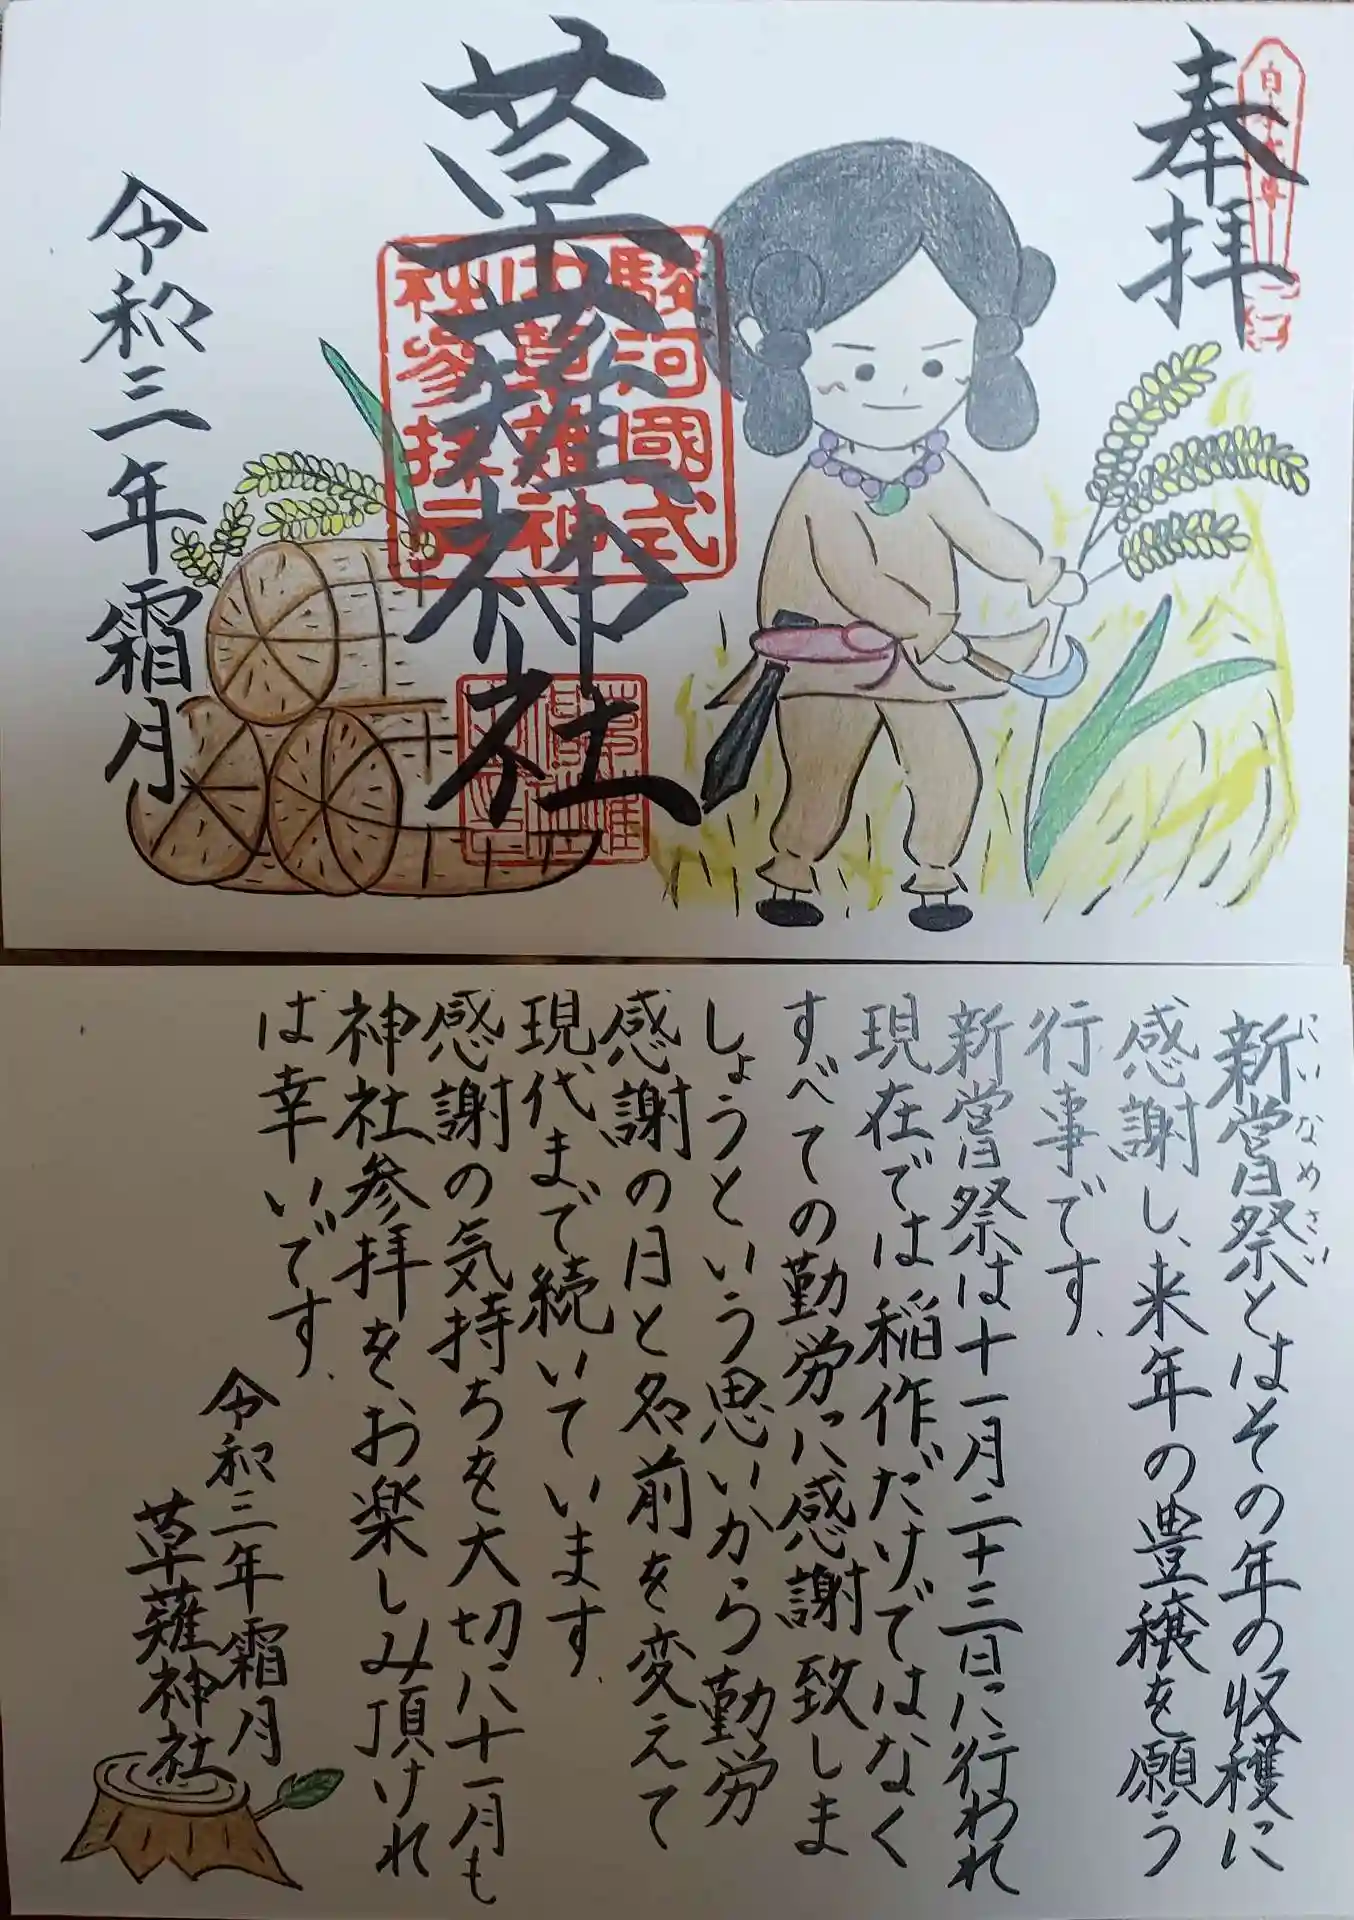 奉拝
草薙神社
駿河國式
内草薙神
社参拝之
令和三年霜月
にいなめさい
新嘗祭とはその年の収穫に
感謝し、来年の豊穣を願う
行事です。
新嘗祭は十一月二十三日に行われ
現在では稲作だけではなく
すべての勤労に感謝致しま
しょうという思いから勤労
感謝の月と名前を変えて
現代まで続いています。
感謝の気持ちを大切に十一月も
神社参拝をお楽しみ頂けれ
ば幸いです。
令和三年霜月
草薙神社